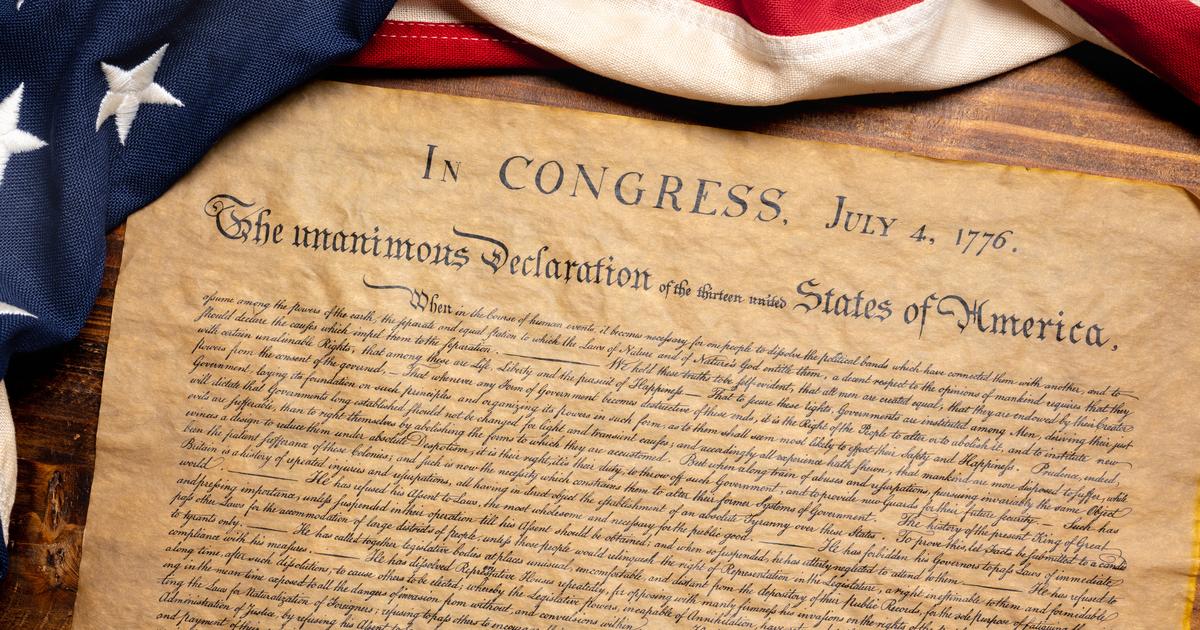 In CONGRESS, July 4, 1776.
The unanimous Declaration of the thirteen united States of America,
When in the Course of human events, it becomes necessary for one people to dissolve the political bands which have connected them with another, and to
assume among the powers of the earth, the separate and equal station to which the Laws of Nature and of Nature's God entitle them, a decent respect to the opinions of mankind requires that they
should declare the causes which impel them to the separation. We hold these truths to be self-evident, that all men are created equal, that they are endowed by their Creator
with certain unalienable Rights, that among these are Life, Liberty and the pursuit of Happiness.— That to secure these rights, Governments are instituted among Men, deriving their just
powers from the consent of the governed,— That whenever any Form of Government becomes destructive of these ends, it is the Right of the People to alter or to abolish it, and to institute new
Government, laying its foundation on such principles and organizing its powers in such form, as to them shall seem most likely to effect their Safety and Happiness. Prudence, indeed,
will dictate that Governments long established should not be changed for light and transient causes; and accordingly all experience hath shewn, that mankind are more disposed to suffer, while
evils are sufferable, than to right themselves by abolishing the forms to which they are accustomed. But when a long train of abuses and usurpations, pursuing invariably the same Object
evinces a design to reduce them under absolute Despotism, it is their right, it is their duty, to throw off such Government, and to provide new Guards for their future security.— Such has
been the patient sufferance of these Colonies; and such is now the necessity which constrains them to alter their former Systems of Government. The history of the present King of Great
Britain is a history of repeated injuries and usurpations, all having in direct object the establishment of an absolute Tyranny over these States. To prove this, let Facts be submitted to a candid
world. He has refused his Assent to Laws, the most wholesome and necessary for the public good. He has forbidden his Governors to pass Laws of immediate
and pressing importance, unless suspended in their operation till his Assent should be obtained; and when so suspended, he has utterly neglected to attend to them. He has refused to
pass other Laws for the accommodation of large districts of people, unless those people would relinquish the right of Representation in the Legislature, a right inestimable to them and formidable
to tyrants only. He has called together legislative bodies at places unusual, uncomfortable, and distant from the depository of their Public Records, for the sole purpose of fatiguing
compliance with his measures. He has dissolved Representative Houses repeatedly, for opposing with manly firmness his invasions on the rights of the
along time, after such dissolutions, to cause others to be elected; whereby the Legislative powers, incapable of Annihilation, have
ing in the mean time exposed to all the dangers of invasion from without, and convulsions within.
ting the Laws for Naturalization of Foreigners; refusing to pass others to encourage
Administration of Justice, by refusing his Assent to
and payment of their